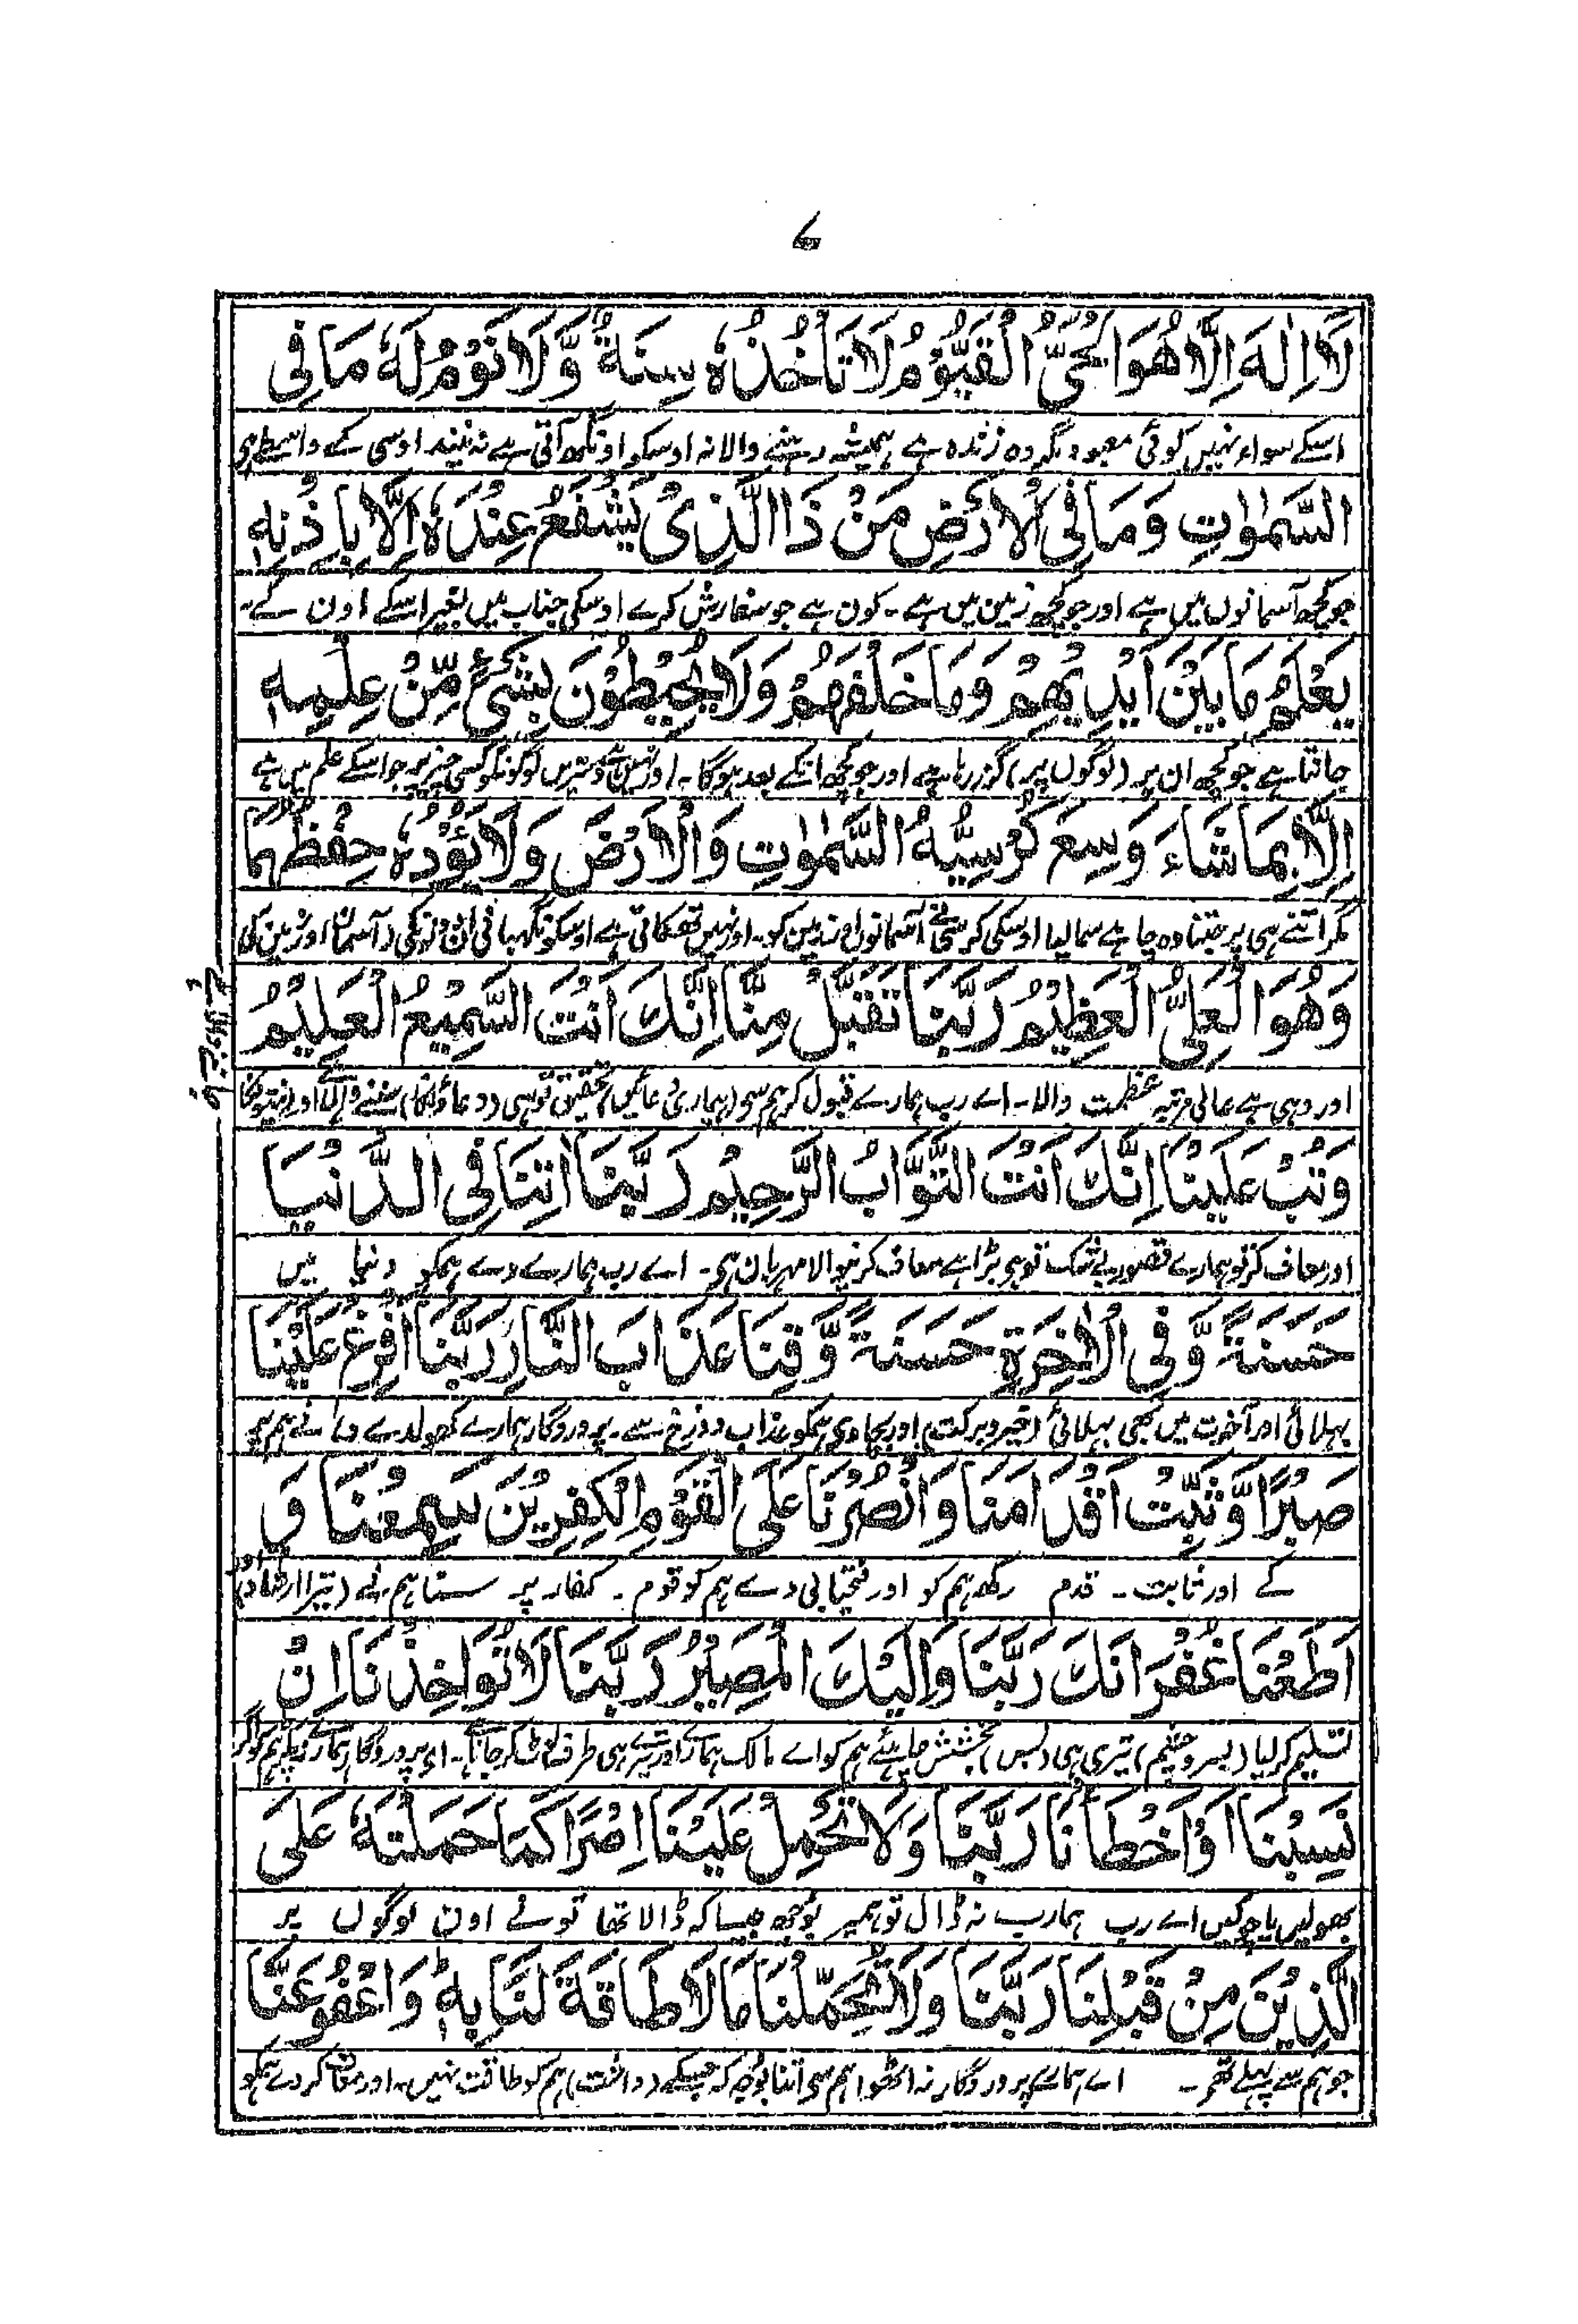 ۶
لَا اِلٰهَ اِلَّا هُوَ الْحَیُّ الْقَیُّوْمُ لَا تَأْخُذُهٗ سِنَةٌ وَّلَا نَوْمٌ لَهٗ مَا فِی
اسکے سواء نہیں کوئی معبود مگر وہ زندہ ہے ہمیشہ رہنے والا نہ اوسکو اونگھ آتی ہے نہ نیند اوسی کے واسطے ہی
السَّمٰوٰتِ وَمَا فِی الْاَرْضِ مَنْ ذَا الَّذِیْ یَشْفَعُ عِنْدَهٗ اِلَّا بِاِذْنِهٖ
جو کچھ آسمانوں میں ہے اور جو کچھ زمین میں ہے ۔ کون ہے جو سفارش کرے اوسکی جناب میں بغیر اسکے اذن کے ۔
یَعْلَمُ مَا بَیْنَ اَیْدِیْهِمْ وَمَا خَلْفَهُمْ وَلَا یُحِیْطُوْنَ بِشَیْءٍ مِّنْ عِلْمِهٖ
جانتا ہے جو کچھ ان پر (لوگوں پر) گزر رہا ہے اور جو کچھ انکے بعد ہوگا ۔ اور نہیں ہے دسترس لوگونکو کسی چیز پر جو اسکے علم میں ہے
اِلَّا بِمَا شَاءَ وَسِعَ کُرْسِیُّهُ السَّمٰوٰتِ وَالْاَرْضَ وَلَا یَؤُدُهٗ حِفْظُهُمَا
مگر اتنے ہی پر جتنا وہ چاہے سما لیا اوسکی کرسی نے آسمانوں اور زمین کو ۔ اور نہیں تھکاتی ہے اوسکو نگہبانی ان دونونکی (آسمان اور زمین کی
وَهُوَ الْعَلِیُّ الْعَظِیْمُ رَبَّنَا تَقَبَّلْ مِنَّا اِنَّكَ اَنْتَ السَّمِیْعُ الْعَلِیْمُ
اور وہی ہے عالی مرتبہ عظمت والا ۔ اے رب ہمارے قبول کر ہم سی (ہماری دعائیں) تحقیق تو ہی (دعاؤنکا) سننے والا اور
وَتُبْ عَلَیْنَا اِنَّكَ اَنْتَ التَّوَّابُ الرَّحِیْمُ رَبَّنَا اٰتِنَا فِی الدُّنْیَا
اور معاف کر تو ہمارے قصور بے شک تو ہی بڑا ہے معاف کرنیوالا مہربان ہی ۔ اے رب ہمارے دے ہمکو دنیا میں
حَسَنَةً وَّفِی الْاٰخِرَةِ حَسَنَةً وَّقِنَا عَذَابَ النَّارِ رَبَّنَا اَفْرِغْ عَلَیْنَا
بہلائی اور آخرت میں بھی بہلائی (خیر و برکت) اور بچا دی ہمکو عذاب دوزخ سے ۔ پروردگار ہمارے کھولدے دہانے ہم پر
صَبْرًا وَّثَبِّتْ اَقْدَامَنَا وَانْصُرْنَا عَلَی الْقَوْمِ الْکٰفِرِیْنَ سَمِعْنَا وَ
کے اور ثابت ۔ قدم رکھ ہم کو اور فتحیابی دے ہم کو قوم ۔ کفار پر سنا ہم نے (تیرا ارشاد) اور
اَطَعْنَا غُفْرَانَكَ رَبَّنَا وَاِلَیْكَ الْمَصِیْرُ رَبَّنَا لَا تُؤَاخِذْنَا اِنْ
تسلیم کر لیا (بسر و چشم) تیری ہی (بس) بخشش چاہئے ہم کو اے مالک ہمارے اور تیرے ہی طرف لوٹ کر جانا ہے ۔ ای پروردگار ہمارے نہ پکڑ ہم کو اگر
نَسِیْنَا اَوْ اَخْطَأْنَا رَبَّنَا وَلَا تَحْمِلْ عَلَیْنَا اِصْرًا کَمَا حَمَلْتَهٗ عَلَی
بھولیں یا چوکیں اے رب ہمارب نہ ڈال تو ہمپر بوجھ جیسا کہ ڈالا تھا تو نے اون لوگوں پر
الَّذِیْنَ مِنْ قَبْلِنَا رَبَّنَا وَلَا تُحَمِّلْنَا مَا لَا طَاقَةَ لَنَا بِهٖ وَاعْفُ عَنَّا
جو ہم سے پہلے تھے ۔ اے ہمارے پروردگار نہ اٹھوا ہم سی اتنا بوجھ کہ جسکے (داشت) ہم کو طاقت نہیں ۔ اور معاف کر دے ہمکو